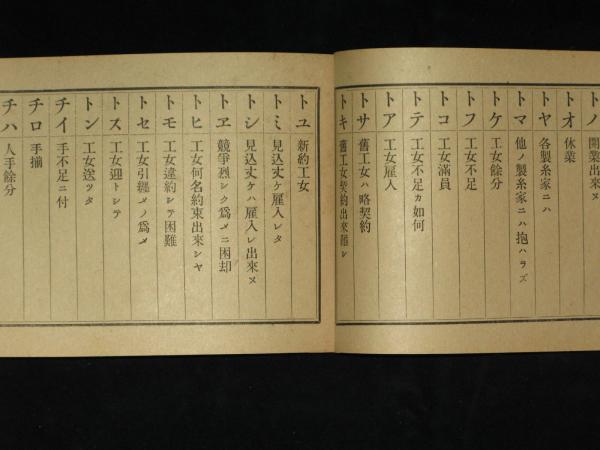 トノ 開業出来ヌ
トオ 休業
トヤ 各製糸家ニハ
トマ 他ノ製糸家ニハ抱ハラズ
トケ 工女餘分
トフ 工女不足
トコ 工女滿員
トテ 工女不足カ如何
トア 工女雇入
トサ 舊工女ハ略契約
トキ 舊工女契約出來難シ
トユ 新約工女
トミ 見込丈ケ雇入レタ
トシ 見込丈ケハ雇入レ出來ヌ
トヱ 競爭烈シク爲メニ困却
トヒ 工女何名約束出來シヤ
トモ 工女違約シテ困難
トセ 工女引纒メノ爲メ
トス 工女迎トシテ
トン 工女送ツタ
チイ 手不足ニ付
チロ 手揃
チハ 人手餘分